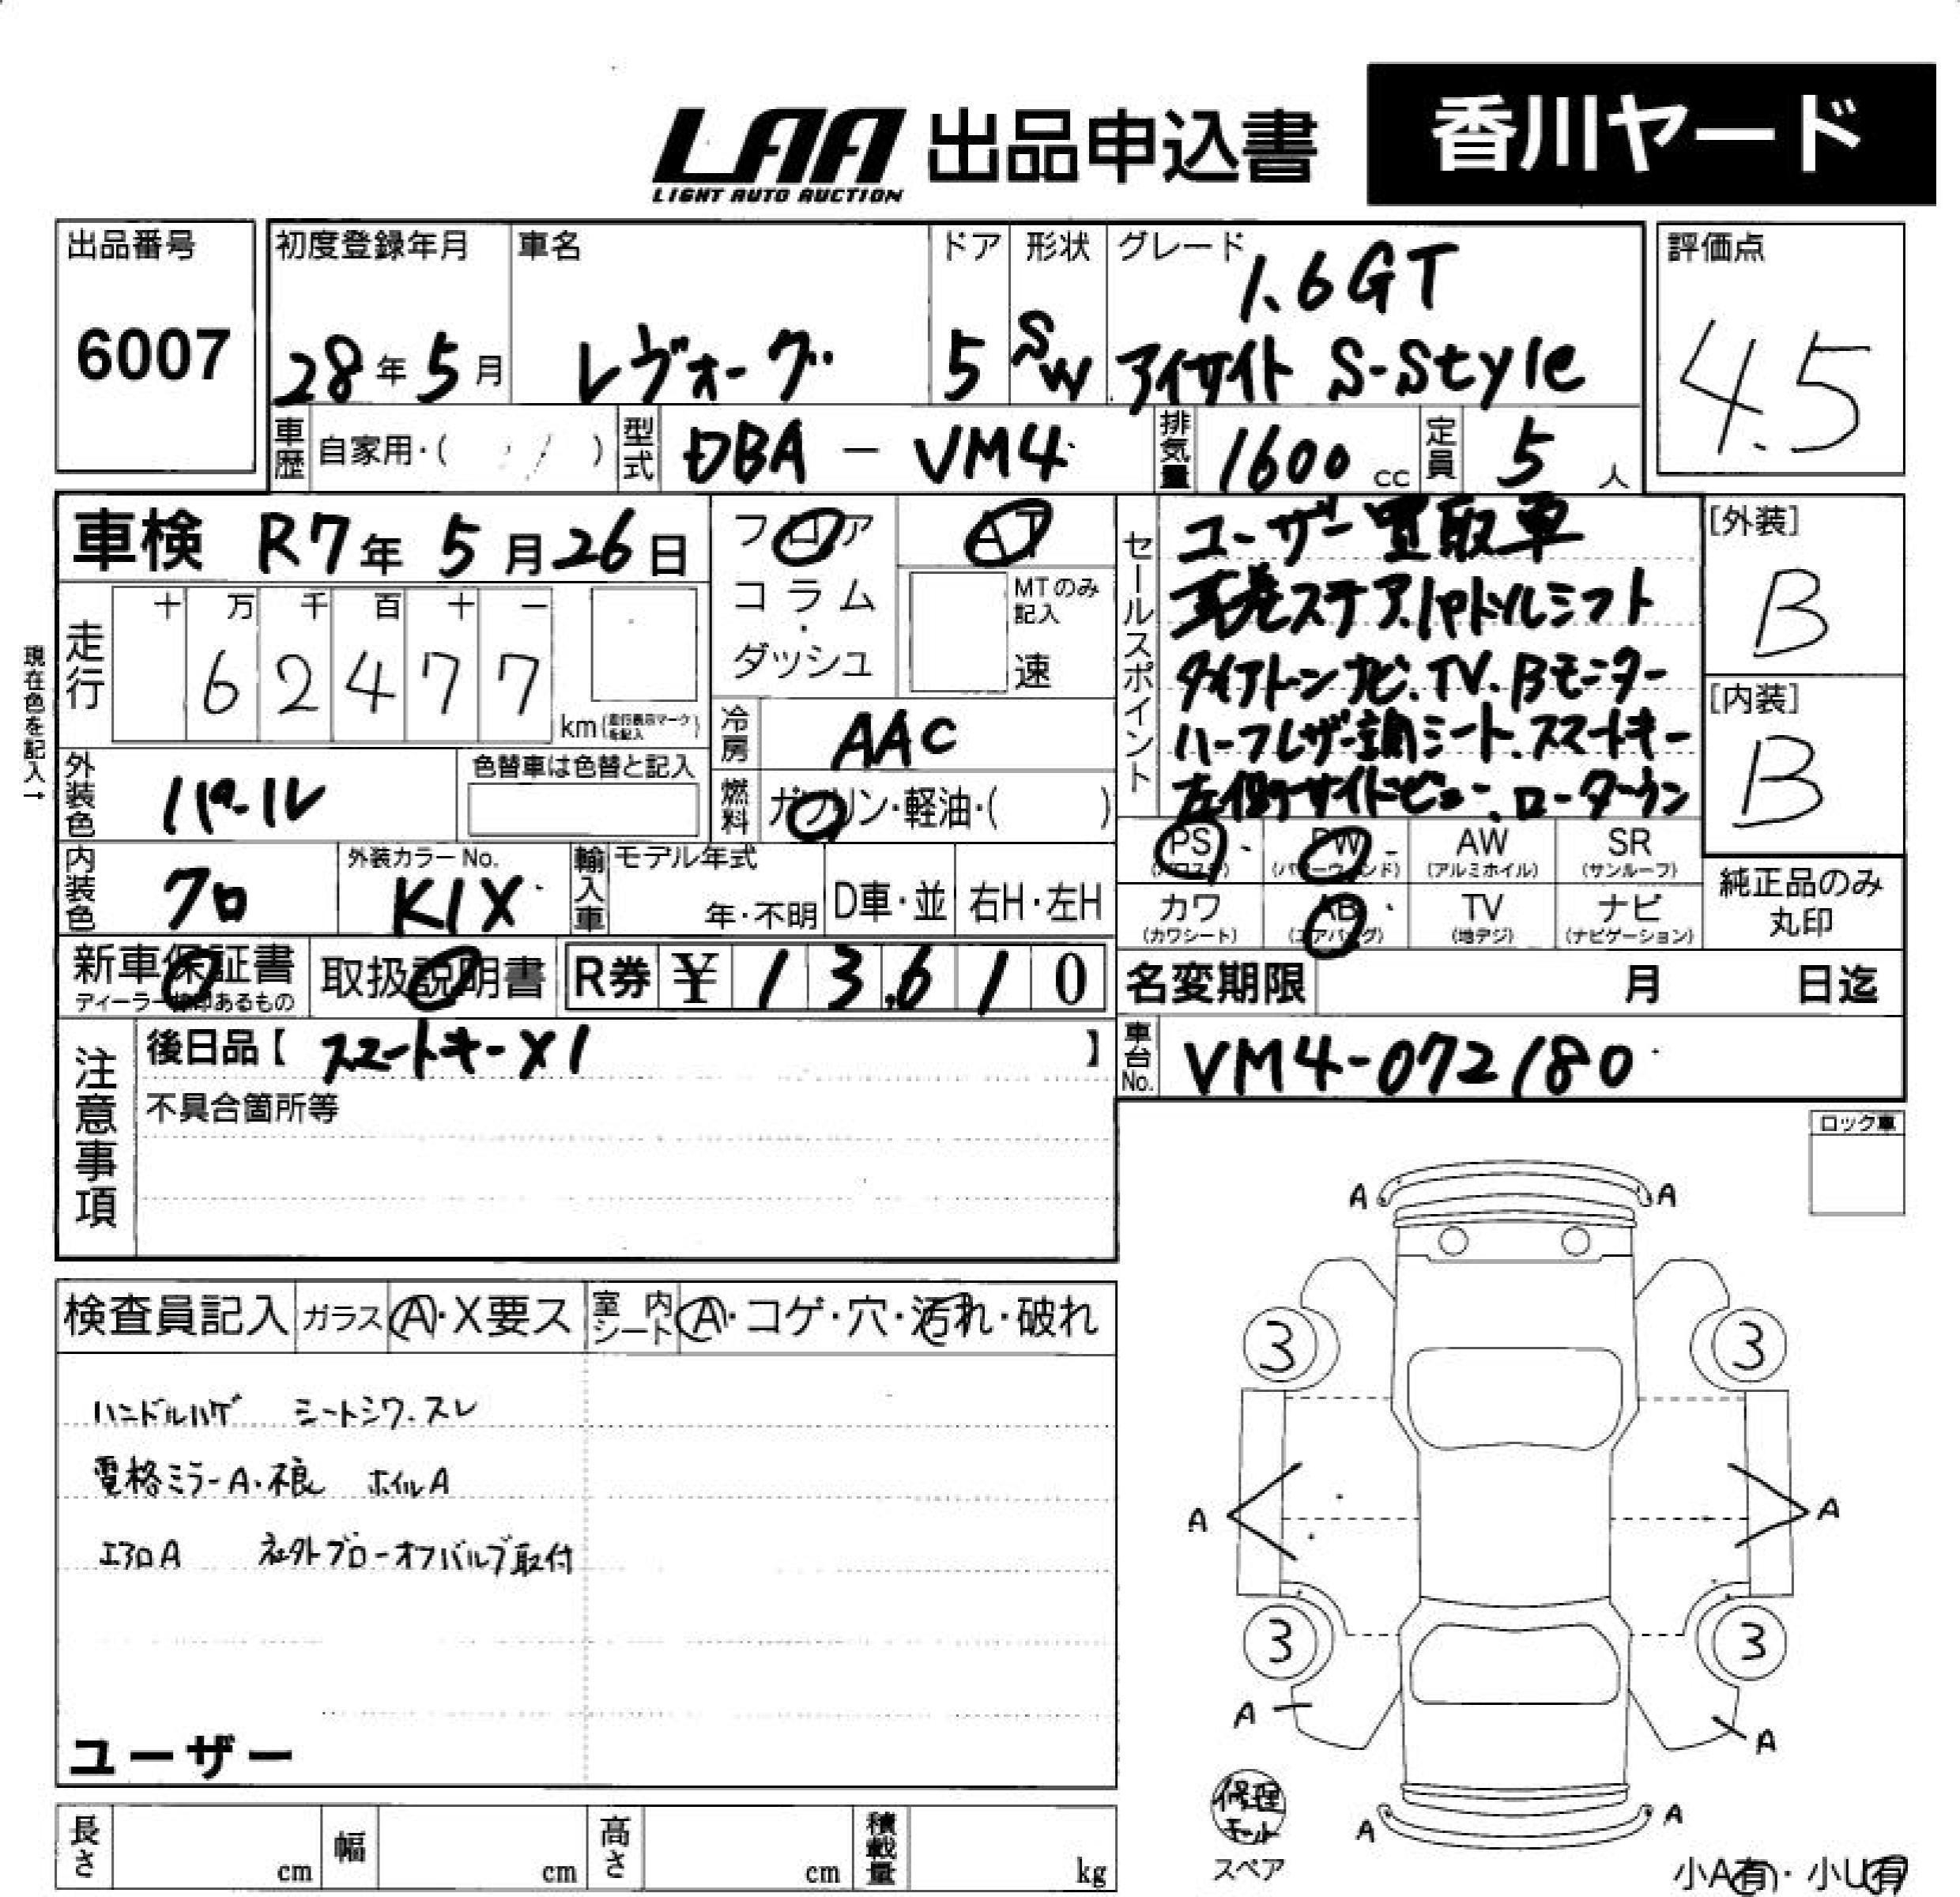 LAA 出品申込書 香川ヤード
LIGHT AUTO AUCTION
出品番号 初度登録年月 車名 ドア 形状 グレード 評価点
6007 28年5月 レヴォーグ 5 SW 1.6GT
アイサイト S-Style
4.5
車歴 自家用・( ) 型式 DBA - VM4 排気量 1600 cc 定員 5 人
車検 R7年 5月26日
フロア AT
コラム・ MTのみ記入
ダッシュ 速
現在色を記入→
走行 十 万 千 百 十 一
62477
km(走行表示マークを記入)
冷房 AAC
外装色 パール 色替車は色替と記入
燃料 ガソリン・軽油・( )
内装色 クロ 外装カラーNo. K1X 輸入車 モデル年式 年・不明 D車・並 右H・左H
セールスポイント
ユーザー買取車
革巻ステア.パドルシフト
ダイアトーンナビ.TV.Bモニター
ハーフレザー調シート.スマートキー
左側サイドビュー.ローダウン
[外装]
B
[内装]
B
PS (パワステ) PW (パワーウィンド) AW (アルミホイル) SR (サンルーフ)
カワ (カワシート) AB (エアバッグ) TV (地デジ) ナビ (ナビゲーション)
純正品のみ
丸印
新車保証書 取扱説明書 R券 ¥ 13,610
ディーラー捺印あるもの
名変期限 月 日迄
車台No. VM4-072180
注意事項
後日品【 スマートキーX1 】
不具合箇所等
ロック車
検査員記入 ガラス A・X要ス 室内シート A・コゲ・穴・汚れ・破れ
ハンドルハゲ シートシワ.スレ
電格ミラーA.不良 ホイルA
エアロA 社外ブローオフバルブ取付
ユーザー
A A
3 3
A A
3 3
A A
A A
修理キット
スペア
小A有・小U有
長さ cm 幅 cm 高さ cm 積載量 kg